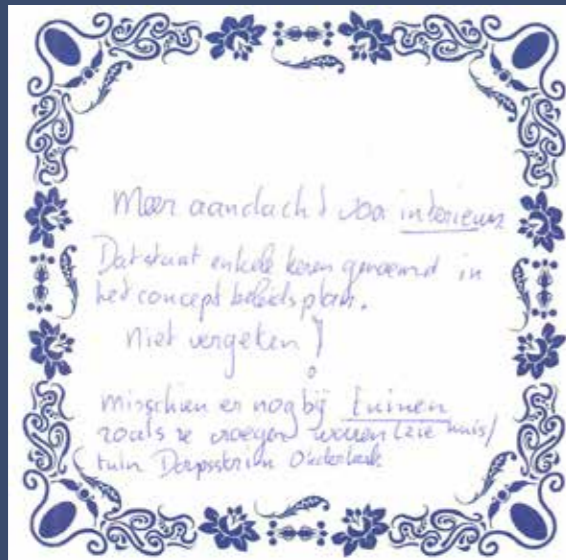 Meer aandacht voor interieurs
Dat staat enkele keren genoemd in
het concept beleidsplan.
Niet vergeten!
Misschien er nog bij tuinen
zoals ze vroeger waren (zie huis/
tuin Dorpsstraat Ouderkerk